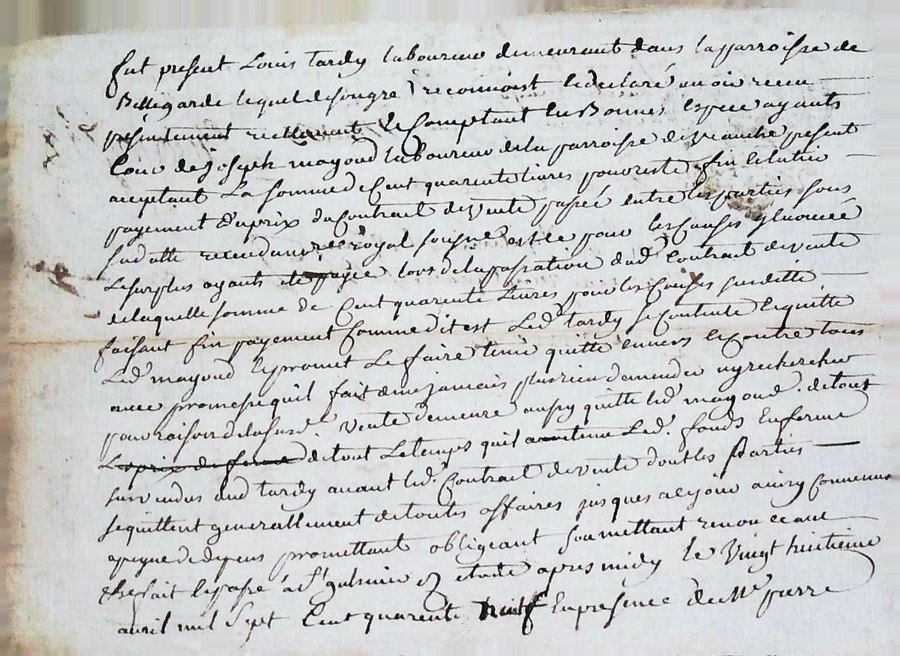 fut present Louis tardy laboureur demeurant dans la parroisse de
Bellegarde lequel de son gré reconnoist et declaré avoir receu
présentement reellement et Comptant en Bonnes espece ayants
Cour de joseph mayoud laboureur de la parroisse de present
aceptant La somme de Cent quarente livres pour reste fin et entie
payement du prix du Contract de vente passée entre les parties sous
sa datte receu dun nre royal soigné este pour les Causes y enoncée
Le surplus ayants ete payée lors de la passation dud Contract de vente
de laquelle somme de Cent quarente Livres pour les Causes susditte
faisant fin payement Comme dit est Led tardy se Contente et quitte
Led mayoud et promet Le faire tenir quitte envers et Contre tous
avec promesse quil fait de ne jamais plus rien demander ny rechercher
pour raison de la susd vente demeure aussy quitte led mayoud de tout
Le prix de ferme de tout Le temps quil a tenu Led fonds en ferme
survendus aud tardy avant led Contract de vente dont les Parties
se quittent generallement de toutes affaires jusques a ce jour ainsy Convenus
a peyne de depens promettant obligeant soumettant renonceant
fait et passé à St galmier etude apres midy le Vingt huitième
avril mil Sept Cent quarente huit En presence de Me pierre